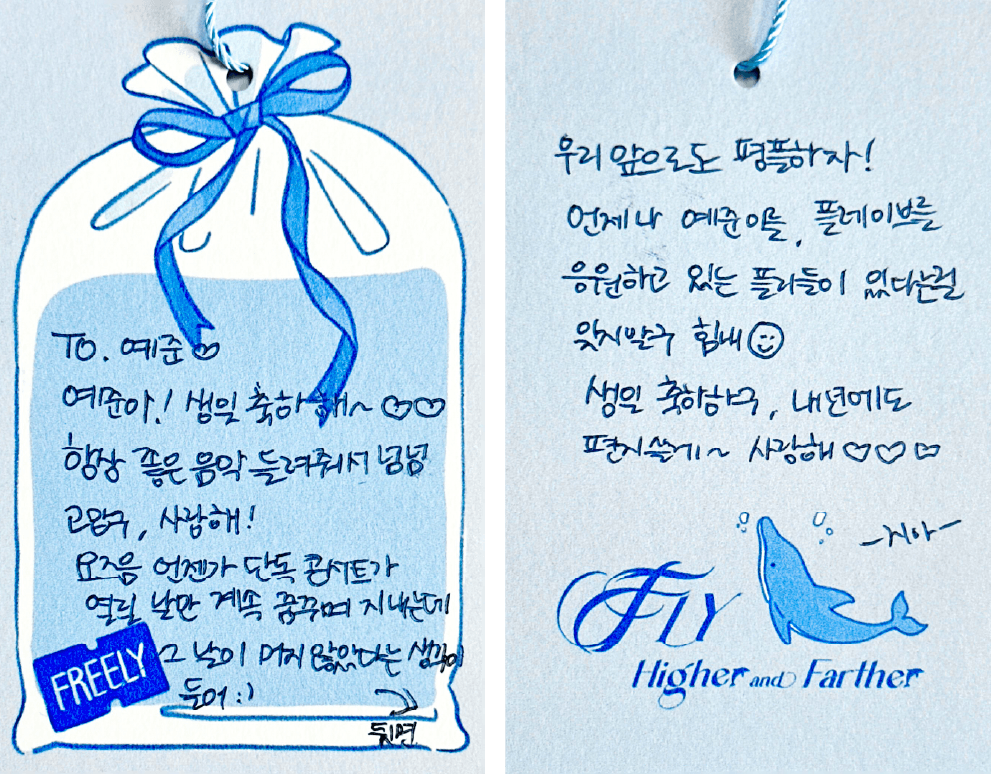 TO. 예준♡
예준아! 생일 축하해~ ♡♡
항상 좋은 음악 들려줘서 넘넘
고맙구, 사랑해!
요즈음 언젠가 단독 콘서트가
열릴 날만 계속 꿈꾸며 지내는데
그 날이 머지 않았다는 생각이
들어 :)
뒷면
FREELY
우리 앞으로도 평플하자!
언제나 예준이를, 플레이브를
응원하고 있는 플리들이 있다는걸
잊지말구 힘내
생일 축하하구, 내년에도
편지쓸게~ 사랑해♡♡♡
-지아-
FLY
Higher and Farther